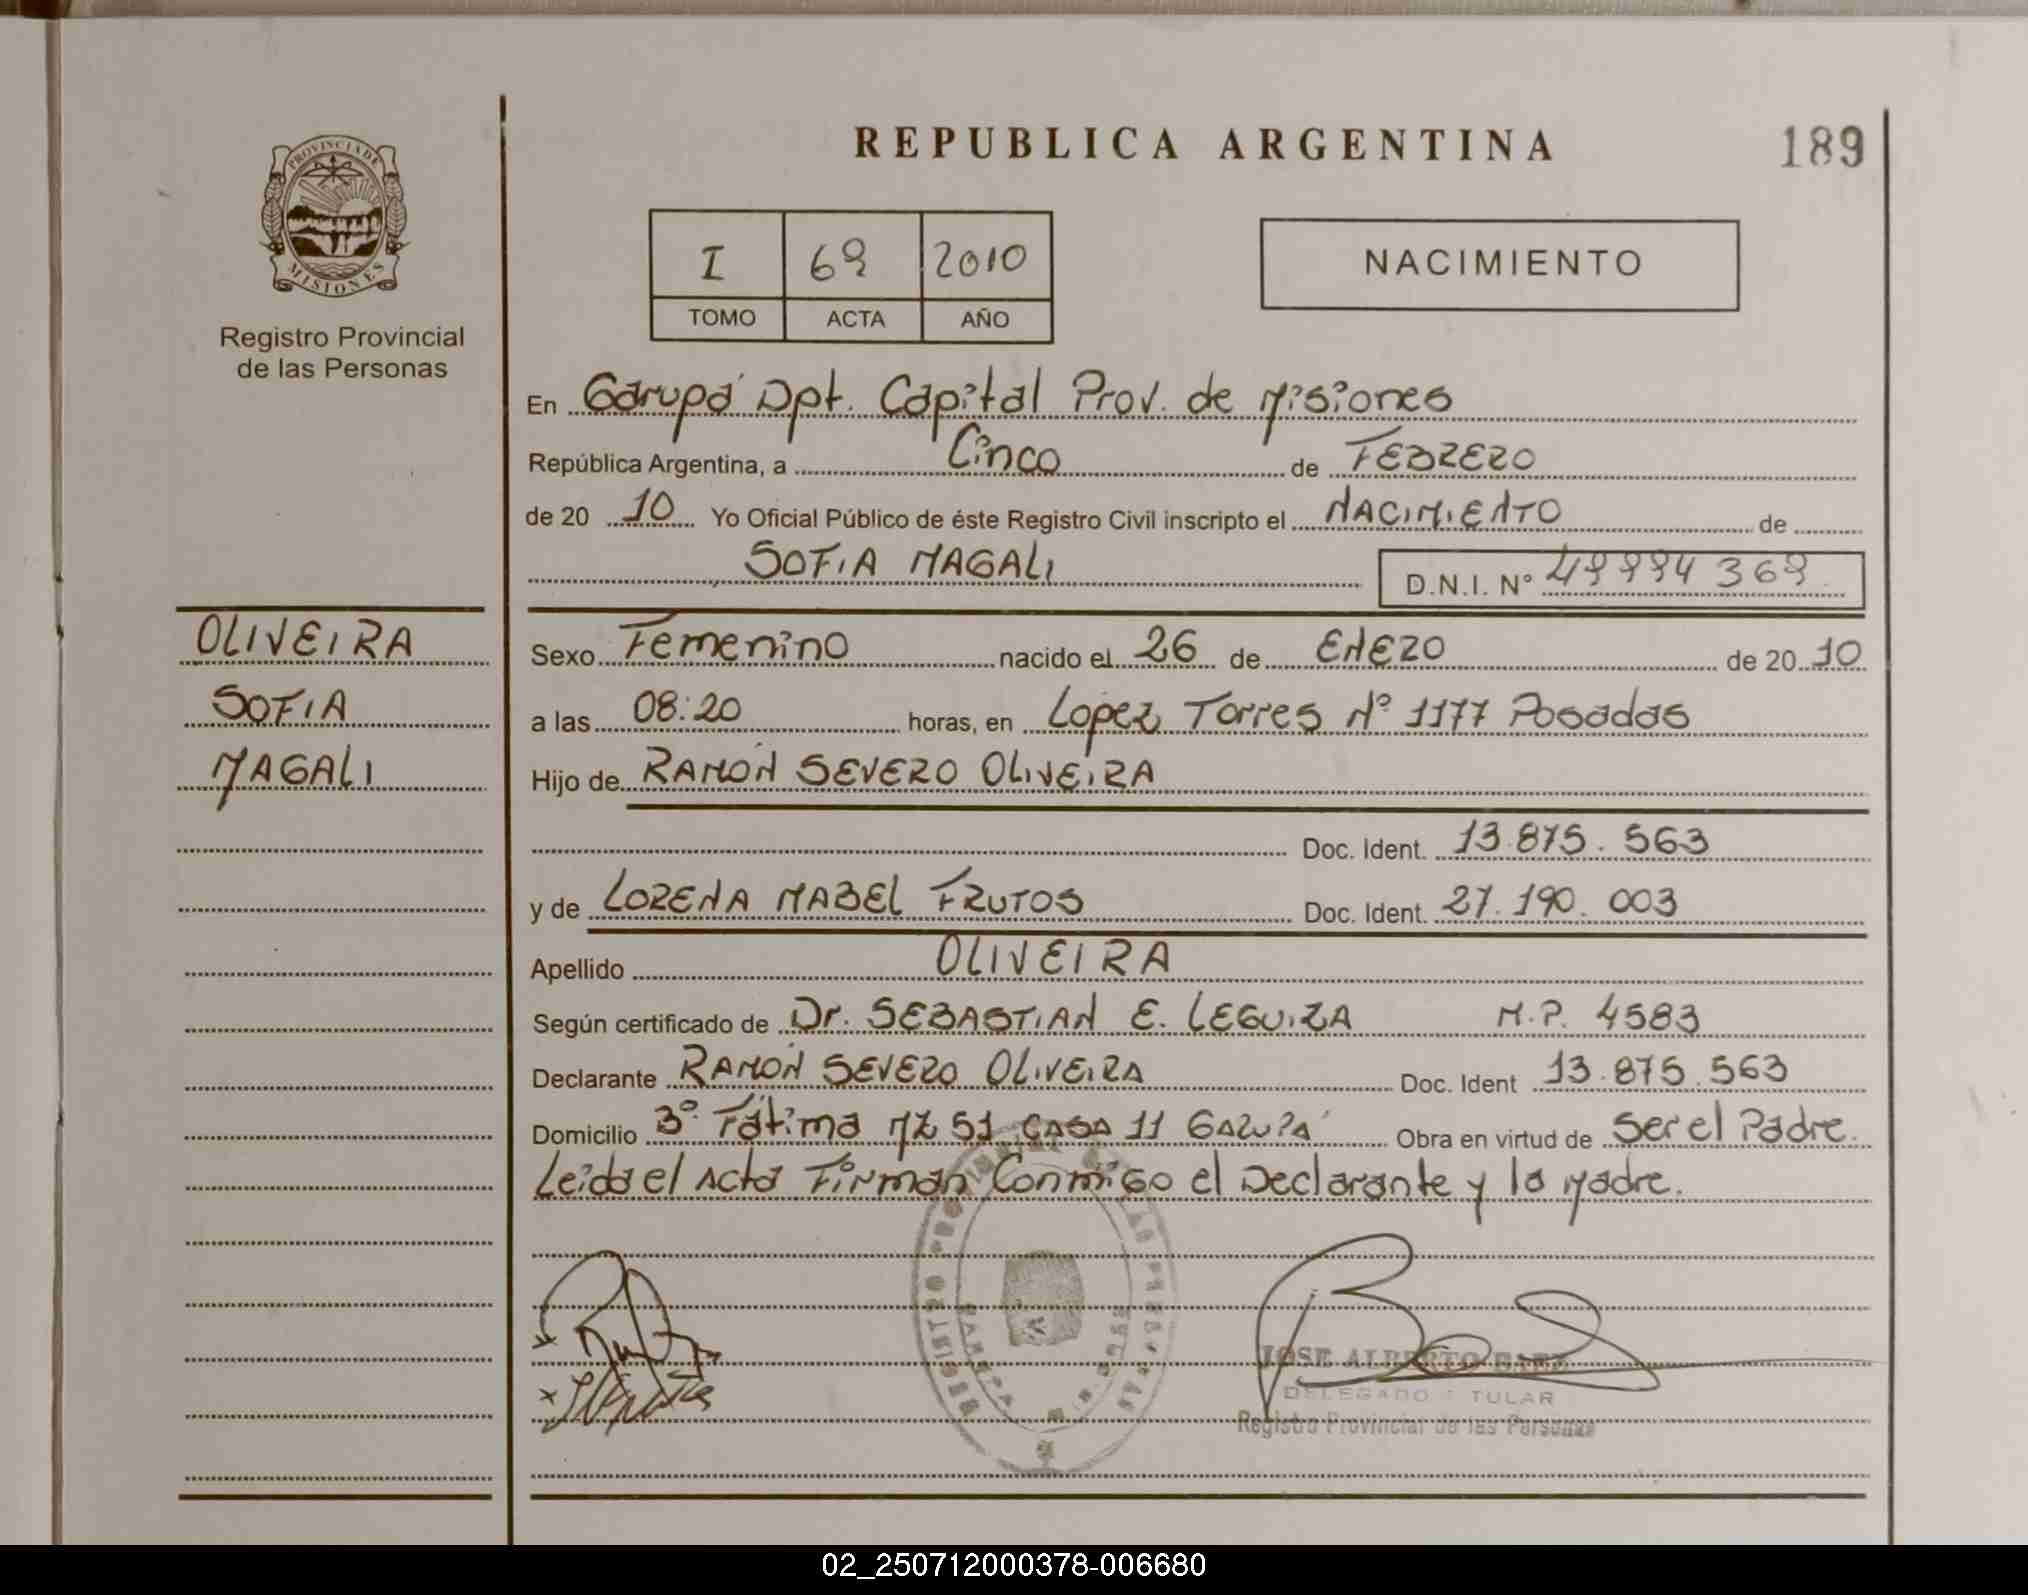 REPUBLICA ARGENTINA
189
PROVINCIA DE
MISIONES
Registro Provincial
de las Personas
I 69 2010
TOMO ACTA AÑO
NACIMIENTO
En Garupá Dpt. Capital Prov. de Misiones
República Argentina, a Cinco de FEBRERO
de 20 10 Yo Oficial Público de éste Registro Civil inscripto el NACIMIENTO de
SOFIA MAGALI D.N.I. Nº 49994369
OLIVEIRA
SOFIA
MAGALI
Sexo Femenino nacido el 26 de ENERO de 20 10
a las 08:20 horas, en Lopez Torres Nº 1177 Posadas
Hijo de RAMÓN SEVERO OLIVEIRA
Doc. Ident. 13.875.563
y de LORENA MABEL FRUTOS Doc. Ident. 27.190.003
Apellido OLIVEIRA
Según certificado de Dr. SEBASTIAN E. LEGUIZA M.P. 4583
Declarante RAMÓN SEVERO OLIVEIRA Doc. Ident 13.875.563
Domicilio 3º Fátima MZ 51 CASA 11 GARUPÁ Obra en virtud de Ser el Padre.
Leida el Acta Firman Conmigo el Declarante y la Madre.
JOSE ALBERTO BAEZ
DELEGADO TITULAR
Registro Provincial de las Personas
02_250712000378-006680